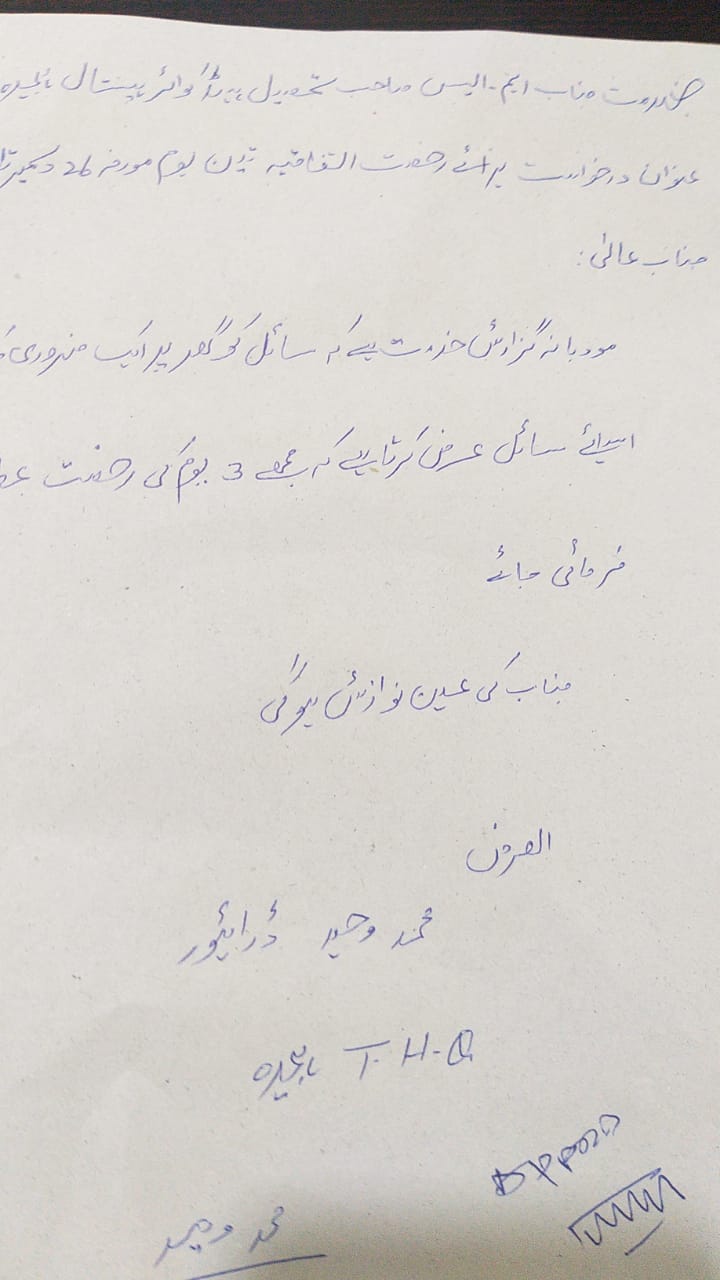 بخدمت جناب ایم۔ایس صاحب تحصیل ہیڈکوائر ہسپتال ہجیرہ
عنوان درخواست برائے رخصت اتفاقیہ تین یوم مورخہ 26 دسمبر تا
جناب عالی:
مودبانہ گزارش خدمت ہے کہ سائل کو گھر پر ایک ضروری
اسلئے سائل عرض کرتا ہے کہ مجھے 3 یوم کی رخصت عطا
فرمائی جائے
جناب کی عین نوازش ہوگی
العرض
محمد وحید ڈرائیور
T.H.Q ہجیرہ
محمد وحید